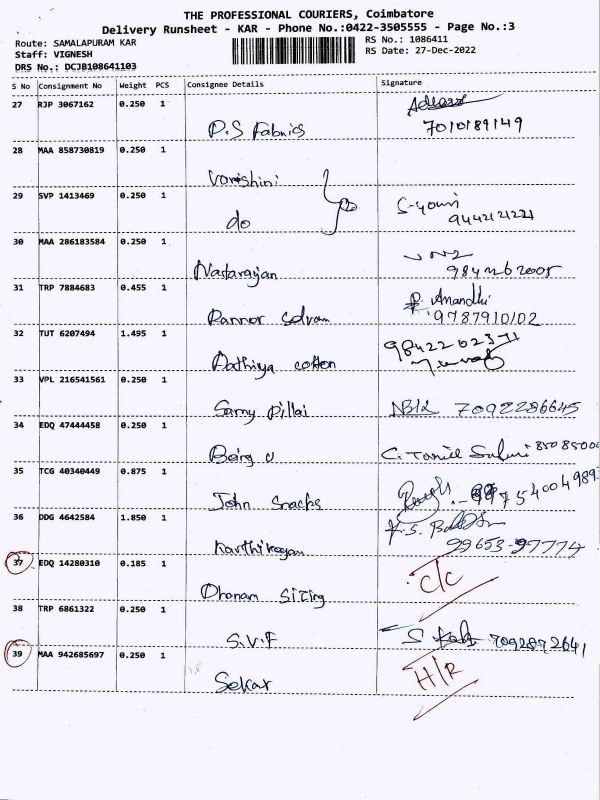 THE PROFESSIONAL COURIERS, Coimbatore
Delivery Runsheet - KAR - Phone No.:0422-3505555 - Page No.:3
Route: SAMALAPURAM KAR
RS No.: 1086411
Staff: VIGNESH
RS Date: 27-Dec-2022
DRS No.: DCJB108641103
S No Consignment No Weight PCS Consignee Details Signature
27 RJP 3067162 0.250 1
P.S Fabrics
7010189149
28 MAA 858730819 0.250 1
Varishini
29 SVP 1413469 0.250 1
do
9442121221
30 MAA 286183584 0.250 1
Natarajan
31 TRP 7884683 0.455 1
Pannor Selvam
Anandhi
9787910102
32 TUT 6207494 1.495 1
Aathiya cotton
9842202371
33 VPL 216541561 0.250 1
Samy Pillai
7092286645
34 EDQ 47444458 0.250 1
35 TCG 40340449 0.875 1
John Snacks
36 DDG 4642584 1.850 1
Karthikeyan
99653-97774
37 EDQ 14280310 0.185 1
C/C
Dhanam Sizing
38 TRP 6861322 0.250 1
S.V.F
7092892641
39 MAA 942685697 0.250 1
Sekar
H/R